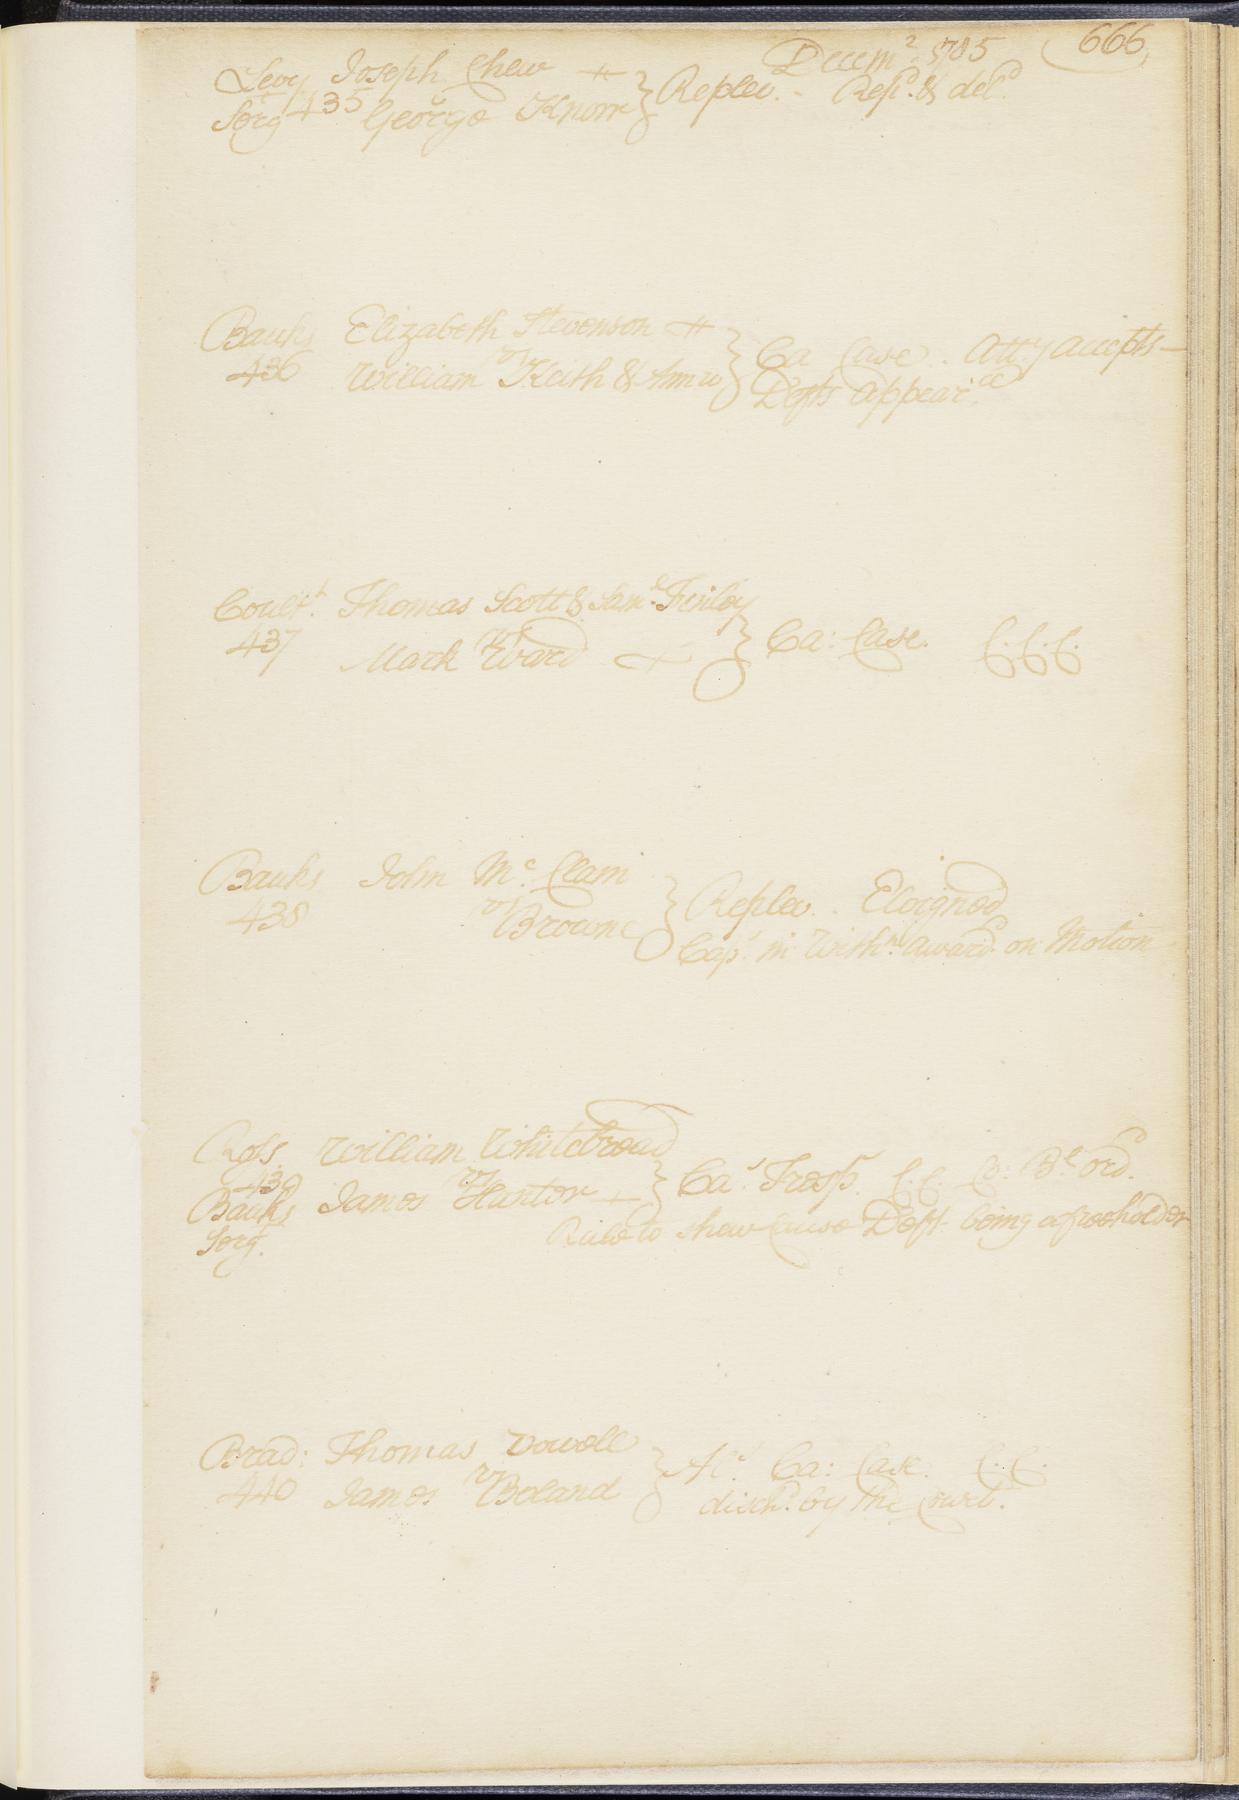 Decemr. 1785 666,
Levy Joseph Chew
Serg 435 vs George Knorr } Replev. - Repd. & deld
Banks Elizabeth Stevenson
436 William vs Keith & Ann ux } Ca Case. Atty accepts
Defts appearce
Coult. Thomas Scott & Saml. Finley
437 Mark vs Ward } Ca: Case. C.C.C.
Banks John Mc. Clam
438 vs Browne } Replev. Eloigned
Cap. in Withnl. award. on Motion
Ross William Whitebread
439 James vs Hunter } Cas. Tresp. C.C. Co: Bl. ord.
Banks
Serg. Rule to shew Cause Deft. being a freeholder
Brad: Thomas Vowell
440 James vs Boland } Als. Ca: Case. C.C.
disch. by the Court.